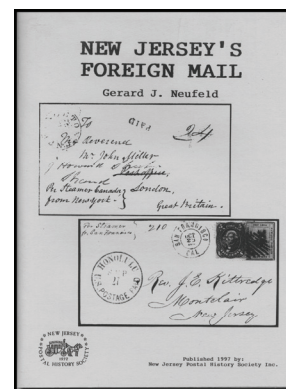 NEW JERSEY'S
FOREIGN MAIL
Gerard J. Neufeld
To
The Reverend
Mr. John Miller
PAID
London,
Pr Steamer Canada
from New York.
Great Britain.
Pr Steamer
210
SAN FRANCISCO
CAL.
HONOLULU
SEP
17
POSTAGE PAID
Rev. J. E. Kittredge
Montclair
New Jersey
NEW JERSEY
POSTAL HISTORY SOCIETY
1972
Published 1997 by:
New Jersey Postal History Society Inc.